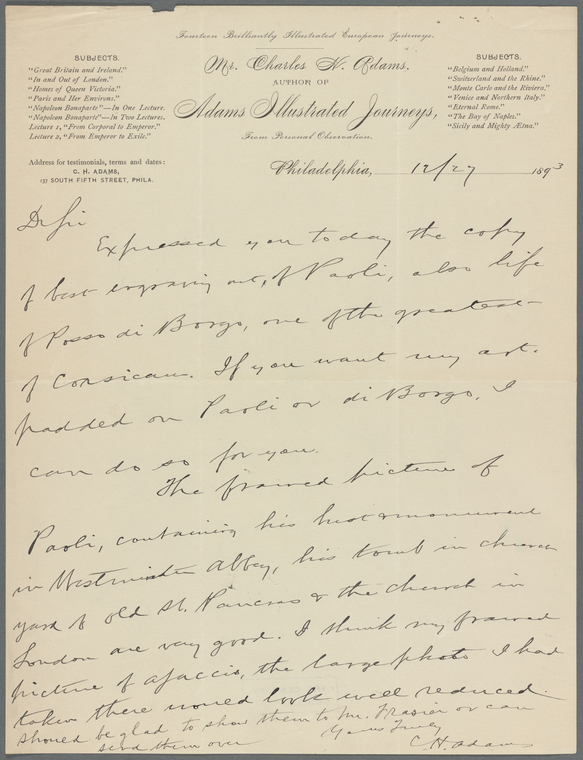 Fourteen Brilliantly Illustrated European Journeys.
Mr. Charles H. Adams.
AUTHOR OF
Adams Illustrated Journeys,
From Personal Observation.
SUBJECTS.
"Great Britain and Ireland."
"In and Out of London."
"Homes of Queen Victoria."
"Paris and Her Environs."
"Napoleon Bonaparte"—In One Lecture.
"Napoleon Bonaparte"—In Two Lectures.
Lecture 1, "From Corporal to Emperor."
Lecture 2, "From Emperor to Exile."
Address for testimonials, terms and dates:
C. H. ADAMS,
137 SOUTH FIFTH STREET, PHILA.
SUBJECTS.
"Belgium and Holland."
"Switzerland and the Rhine."
"Monte Carlo and the Riviera."
"Venice and Northern Italy."
"Eternal Rome."
"The Bay of Naples."
"Sicily and Mighty Ætna."
Philadelphia, 12/27 1893
Dr Sir
Expressed you today the copy
of best engraving out, of Paoli, also life
of Posso di Borgo, one of the greatest
of Corsicans. If you want my art.
padded on Paoli or di Borgo, I
can do so for you.
The framed picture of
Paoli, containing his bust & monument
in Westminster Abbey, his tomb in church
yard of old St. Pancras & the church in
London are very good. I think my framed
picture of Ajaccio, the large photo I had
taken there would look well reduced.
Should be glad to show them to Mr. Frasier or can
send them over
Yours Truly
C. H. Adams